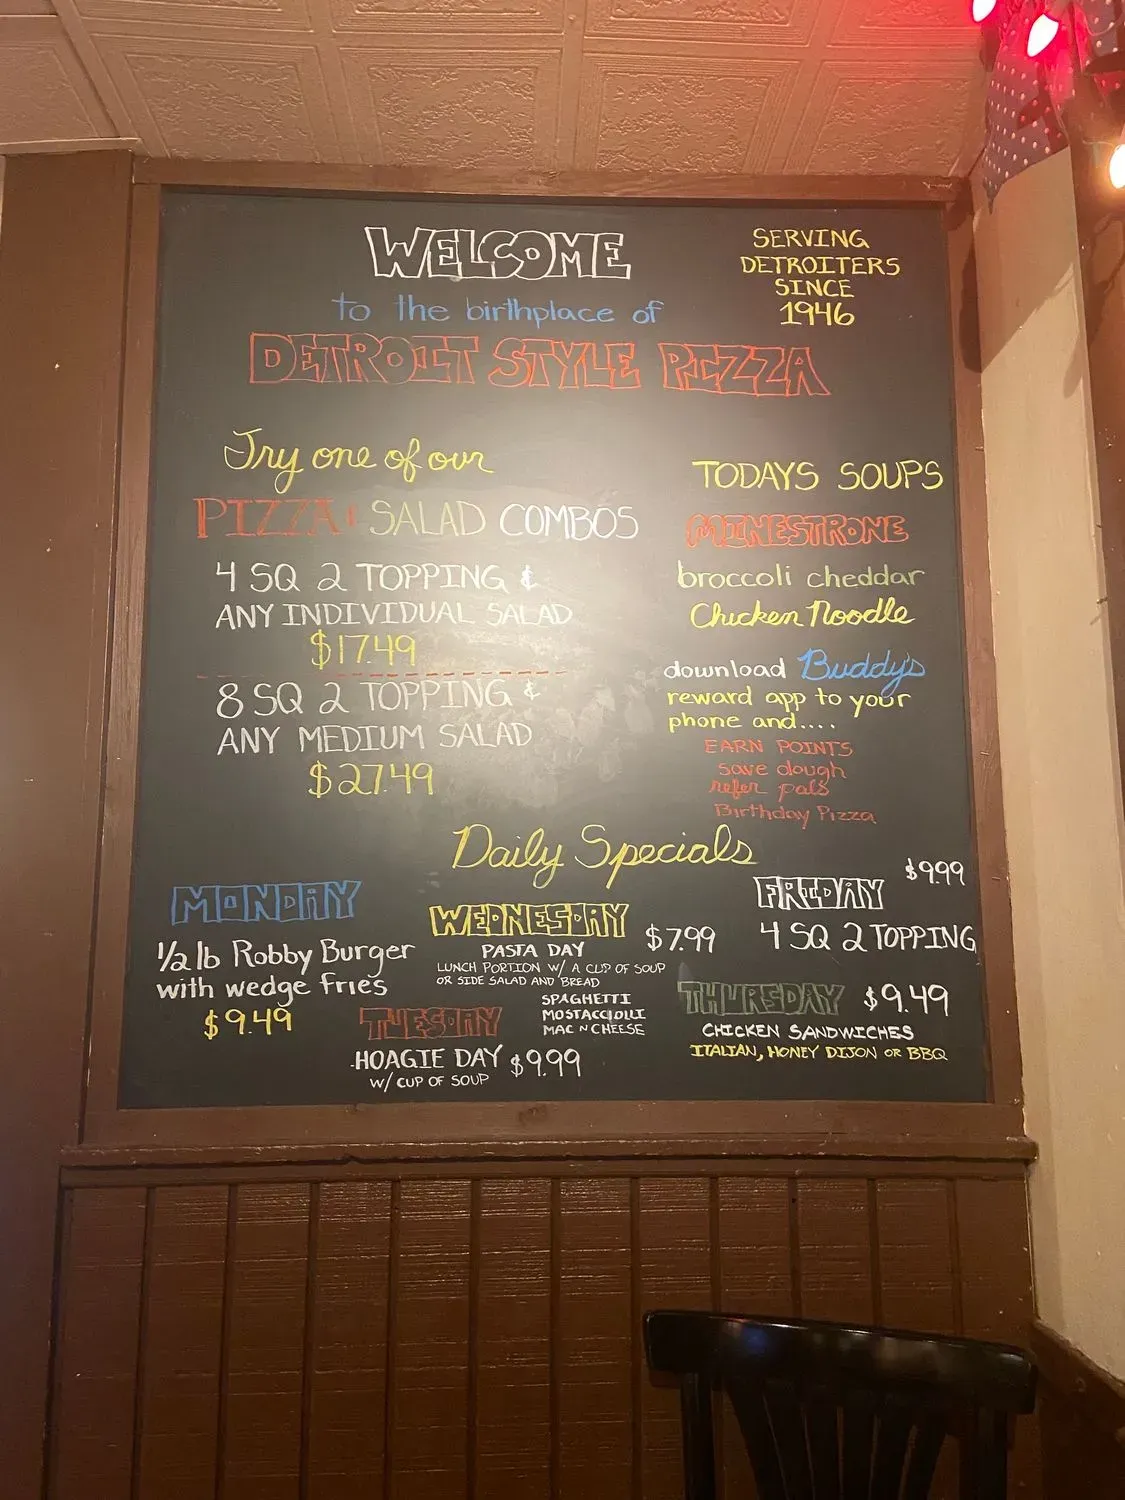 WELCOME
to the birthplace of
DETROIT STYLE PIZZA
SERVING
DETROITERS
SINCE
1946
Try one of our
PIZZA & SALAD COMBOS
4 SQ 2 TOPPING &
ANY INDIVIDUAL SALAD
$17.49
8 SQ 2 TOPPING &
ANY MEDIUM SALAD
$27.49
TODAYS SOUPS
MINESTRONE
broccoli cheddar
Chicken Noodle
download Buddy's
reward app to your
phone and....
EARN POINTS
save dough
refer pals
Birthday Pizza
Daily Specials
MONDAY
1/2 lb Robby Burger
with wedge fries
$9.49
TUESDAY
HOAGIE DAY $9.99
W/ CUP OF SOUP
WEDNESDAY $7.99
PASTA DAY
LUNCH PORTION W/ A CUP OF SOUP
OR SIDE SALAD AND BREAD
SPAGHETTI
MOSTACCIOLLI
MAC N CHEESE
THURSDAY $9.49
CHICKEN SANDWICHES
ITALIAN, HONEY DIJON OR BBQ
FRIDAY $9.99
4 SQ 2 TOPPING